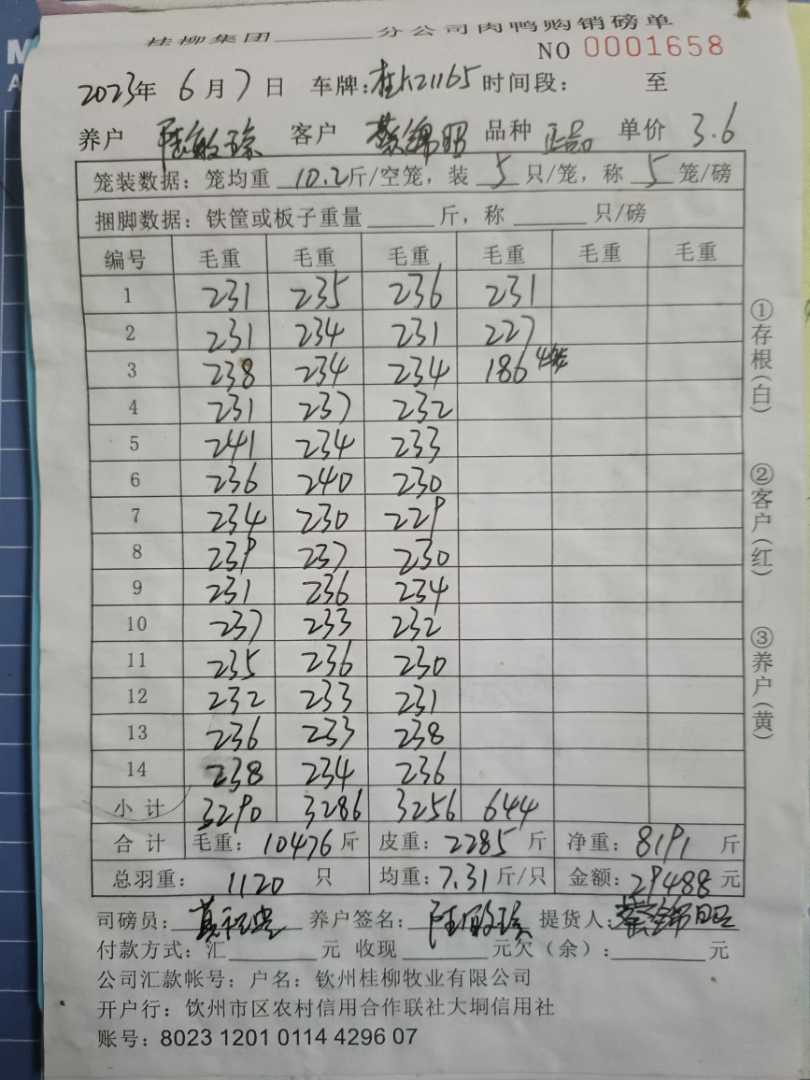 桂柳集团______分公司肉鸭购销磅单
NO 0001658
2023年 6月7日 车牌:桂K21165 时间段: 至
养户 陆敏琼 客户 蔡锦昭 品种 正品 单价 3.6
笼装数据:笼均重 10.2斤/空笼,装 5 只/笼,称 5 笼/磅
捆脚数据:铁筐或板子重量______斤,称______只/磅
编号 毛重 毛重 毛重 毛重 毛重 毛重
1 231 235 236 231
2 231 234 231 227
3 238 234 234 186 4笼
4 231 237 232
5 241 234 233
6 236 240 230
7 234 230 229
8 239 237 230
9 231 236 234
10 237 233 232
11 235 236 230
12 232 233 231
13 236 233 238
14 238 234 236
小计 3290 3286 3256 644
合计 毛重: 10476 斤 皮重: 2285 斤 净重: 8191 斤
总羽重: 1120 只 均重: 7.31 斤/只 金额: 29488 元
司磅员: 养户签名: 陆敏琼 提货人: 蔡锦昭
付款方式:汇______元 收现______元欠(余):______元
公司汇款帐号:户名:钦州桂柳牧业有限公司
开户行:钦州市区农村信用合作联社大垌信用社
账号:8023 1201 0114 4296 07
①存根(白)
②客户(红)
③养户(黄)
M